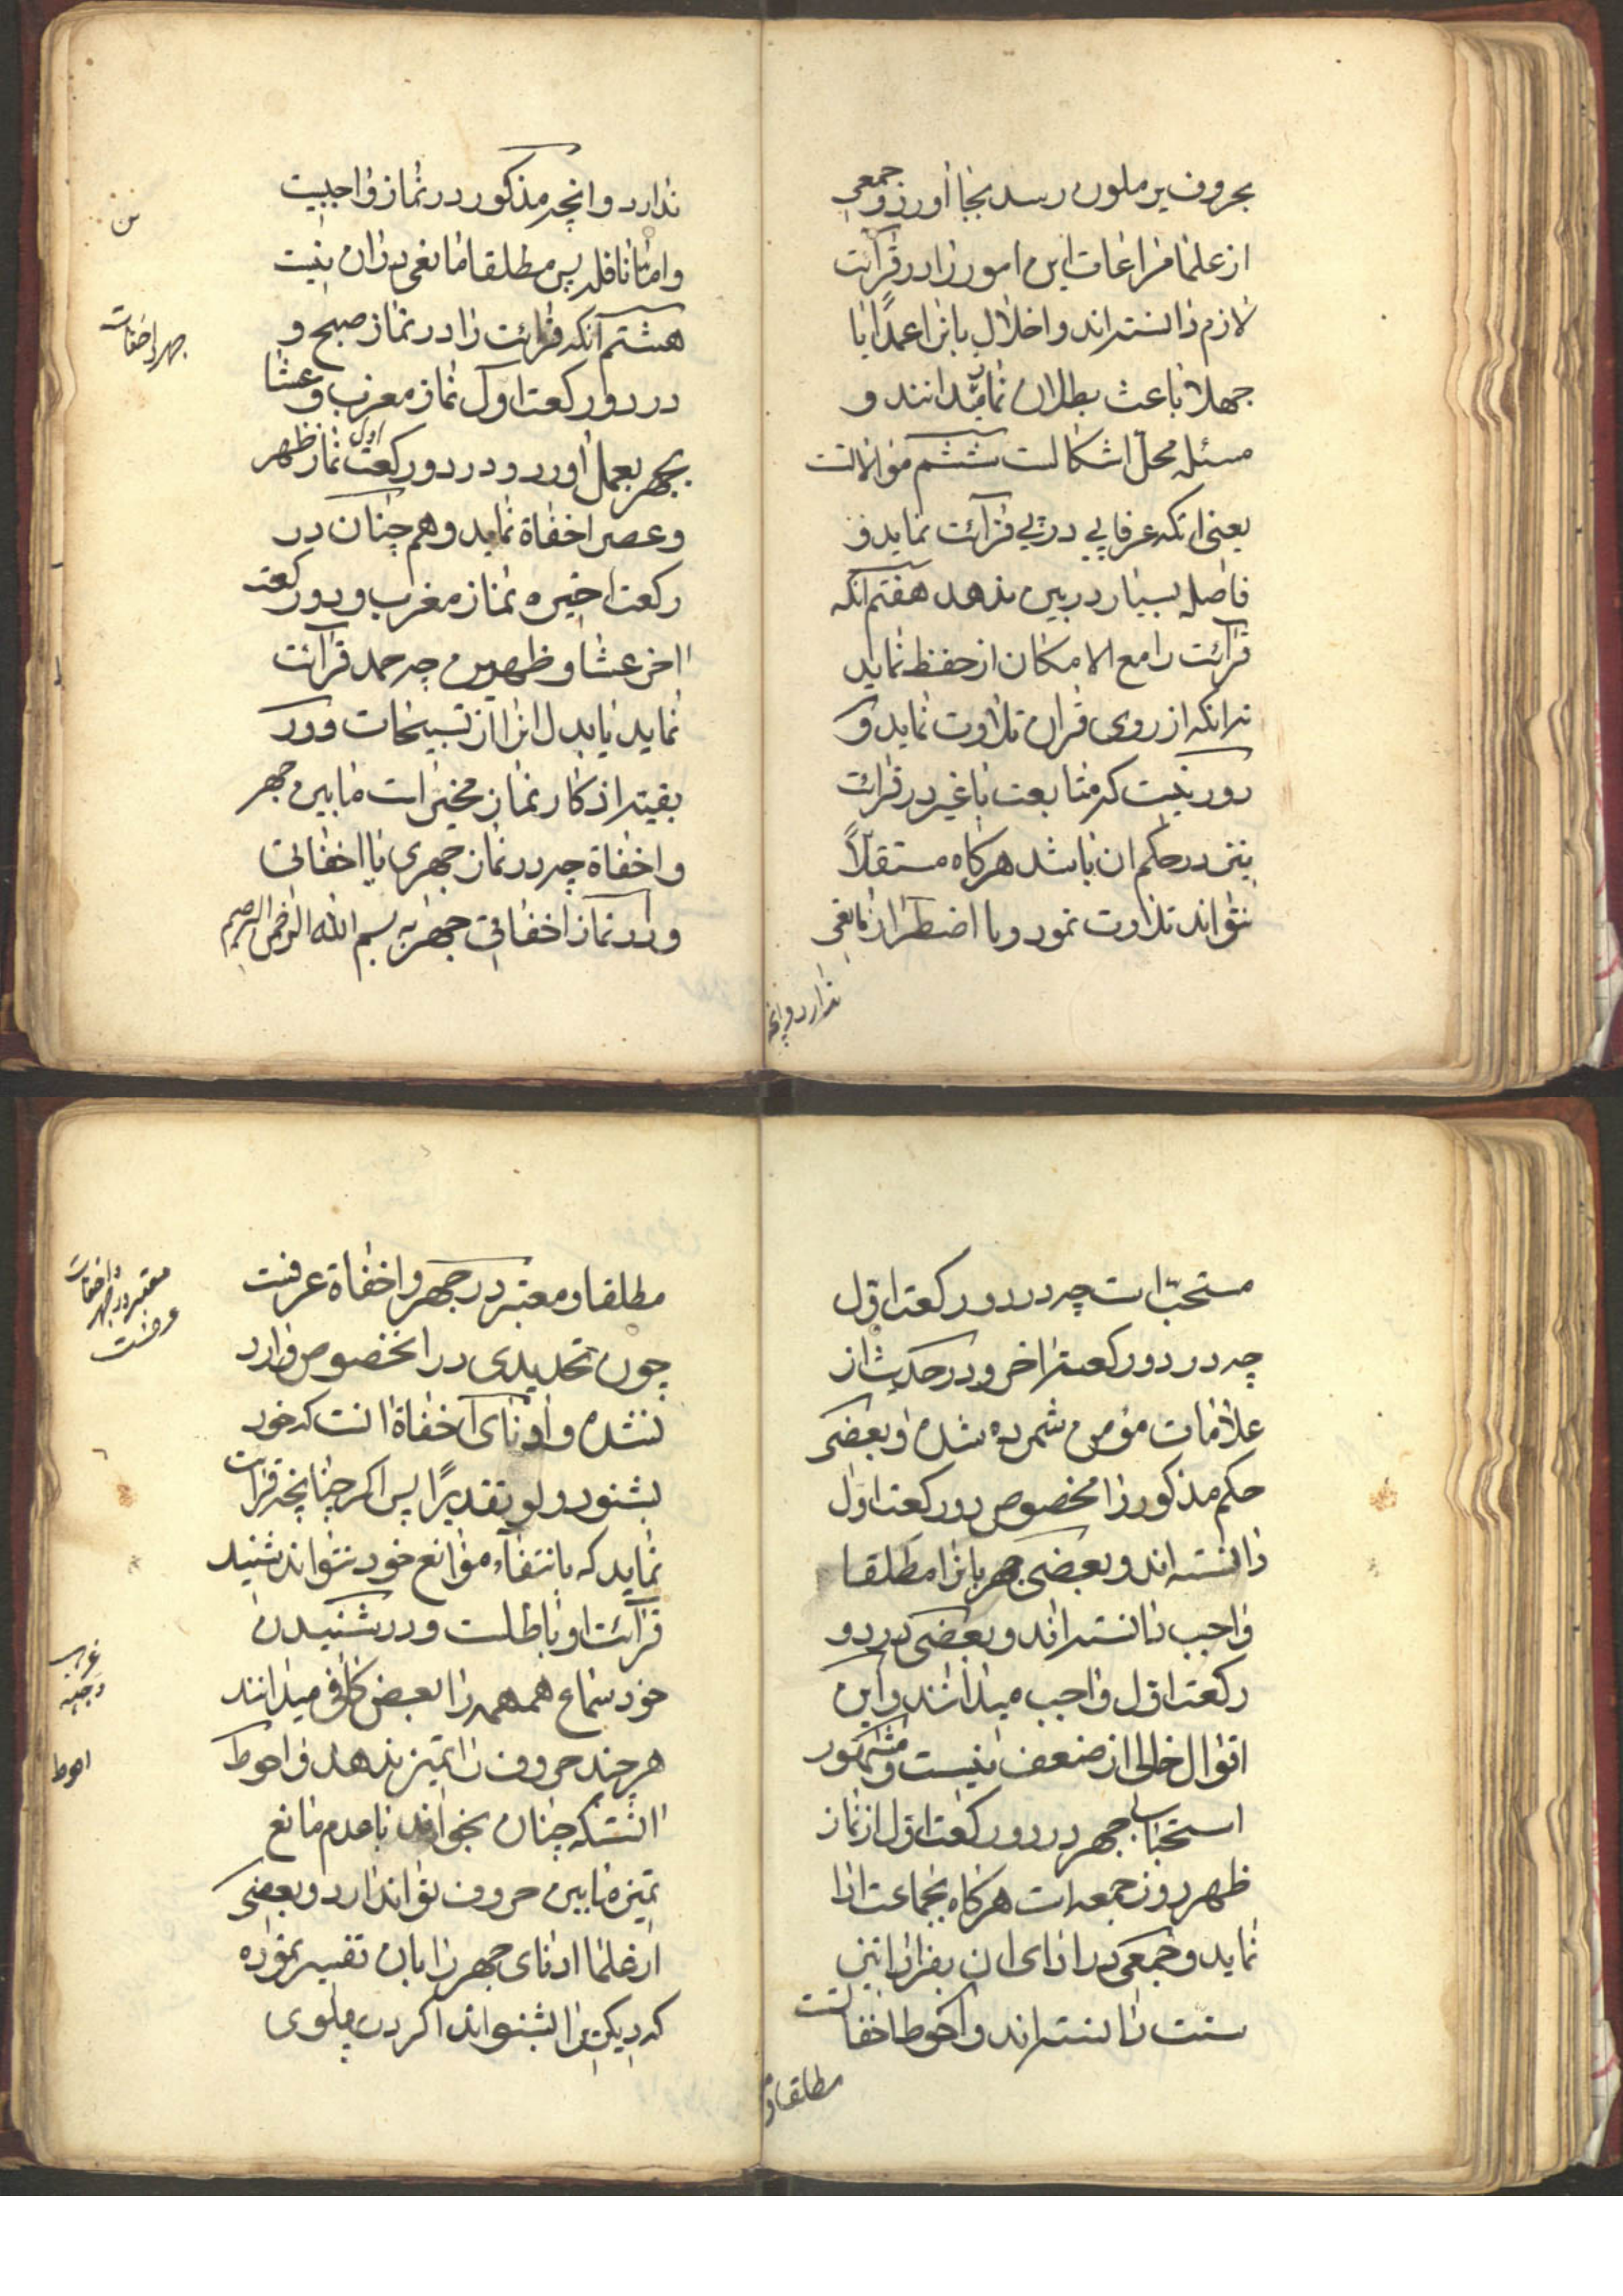 بحروف یرملون رسد بجا اورد و جمعی
از علما مراعات این امور را در قرآئت
لازم دانسته‌اند و اخلال بانرا عمدًا یا
جهلا باعث بطلان نماز میدانند و
مسئله محل اشکالست ششم موالاتست
یعنی انکه عرفا پی در پی قرآئت نماید و
فاصله بسیار در بین ندهد هفتم انکه
قرآئت را مع الامکان از حفظ نماید
نه انکه از روی قران تلاوت نماید و
دور نیست که متابعت با غیر در قرائت
نیز در حکم ان باشد هرکاه مستقلاً
نتواند تلاوت نمود و با اضطرار مانعی
ندارد و انچه
ندارد و انچه مذکور در نماز واجبیت
و اما نافله پس مطلقا مانعی در ان نیست
هشتم آنکه قرائت را در نماز صبح و
در دو رکعت اول نماز مغرب و عشا
بجهر بعمل اورد و در دو رکعت اول نماز ظهر
و عصر اخفاة نماید و هم چنان در
رکعت اخیره نماز مغرب و دو رکعت
اخر عشا و ظهرین چه حمد قرآئت
نماید یا بدل انرا از تسبیحات و در
بقیه اذکار نماز مخیر است مابین جهر
و اخفاة چه در نماز جهری یا اخفاتی
و در نماز اخفاتی جهر به بسم الله الرحمن الرحیم
جهر و اخفات
مستحب است چه در دو رکعت اول
چه در دو رکعت اخر و در حدیث از
علامات مؤمن شمرده شده و بعضی
حکم مذکور را مخصوص دو رکعت اول
دانسته اند و بعضی جهر بانرا مطلقا
واجب دانسته اند و بعضی در دو
رکعت اول واجب میدانند و این
اقوال خالی از ضعف نیست و مشهور
استحباب جهر در دو رکعت اول از نماز
ظهر روز جمعه است هرکاه بجماعت ادا
نماید و جمعی در ادای ان بفرادا نیز
سنت دانسته اند و احوط اخفاتست
مطلقا و
مطلقا و معتبر در جهر و اخفاة عرفست
چون تحدیدی در انخصوص وارد
نشده و ادنای اخفاة انست که خود
بشنود ولو تقدیرًا پس اکر چنانچه قرائت
نماید که بانتفاء موانع خود نتواند شنید
قرآئت او باطلست و در شنیدن
خود سماع همهمه را بعض کافی میدانند
هر چند حروف را تمیز ندهد و احوط
انستکه چنان بخواند با عدم مانع
تمیز مابین حروف تواند داد و بعضی
از علما ادنای جهر را بان تفسیر نموده
که دیکری را بشنواند اکر در پهلوی
معتبر در جهر
و اخفات
عرفست
احوط